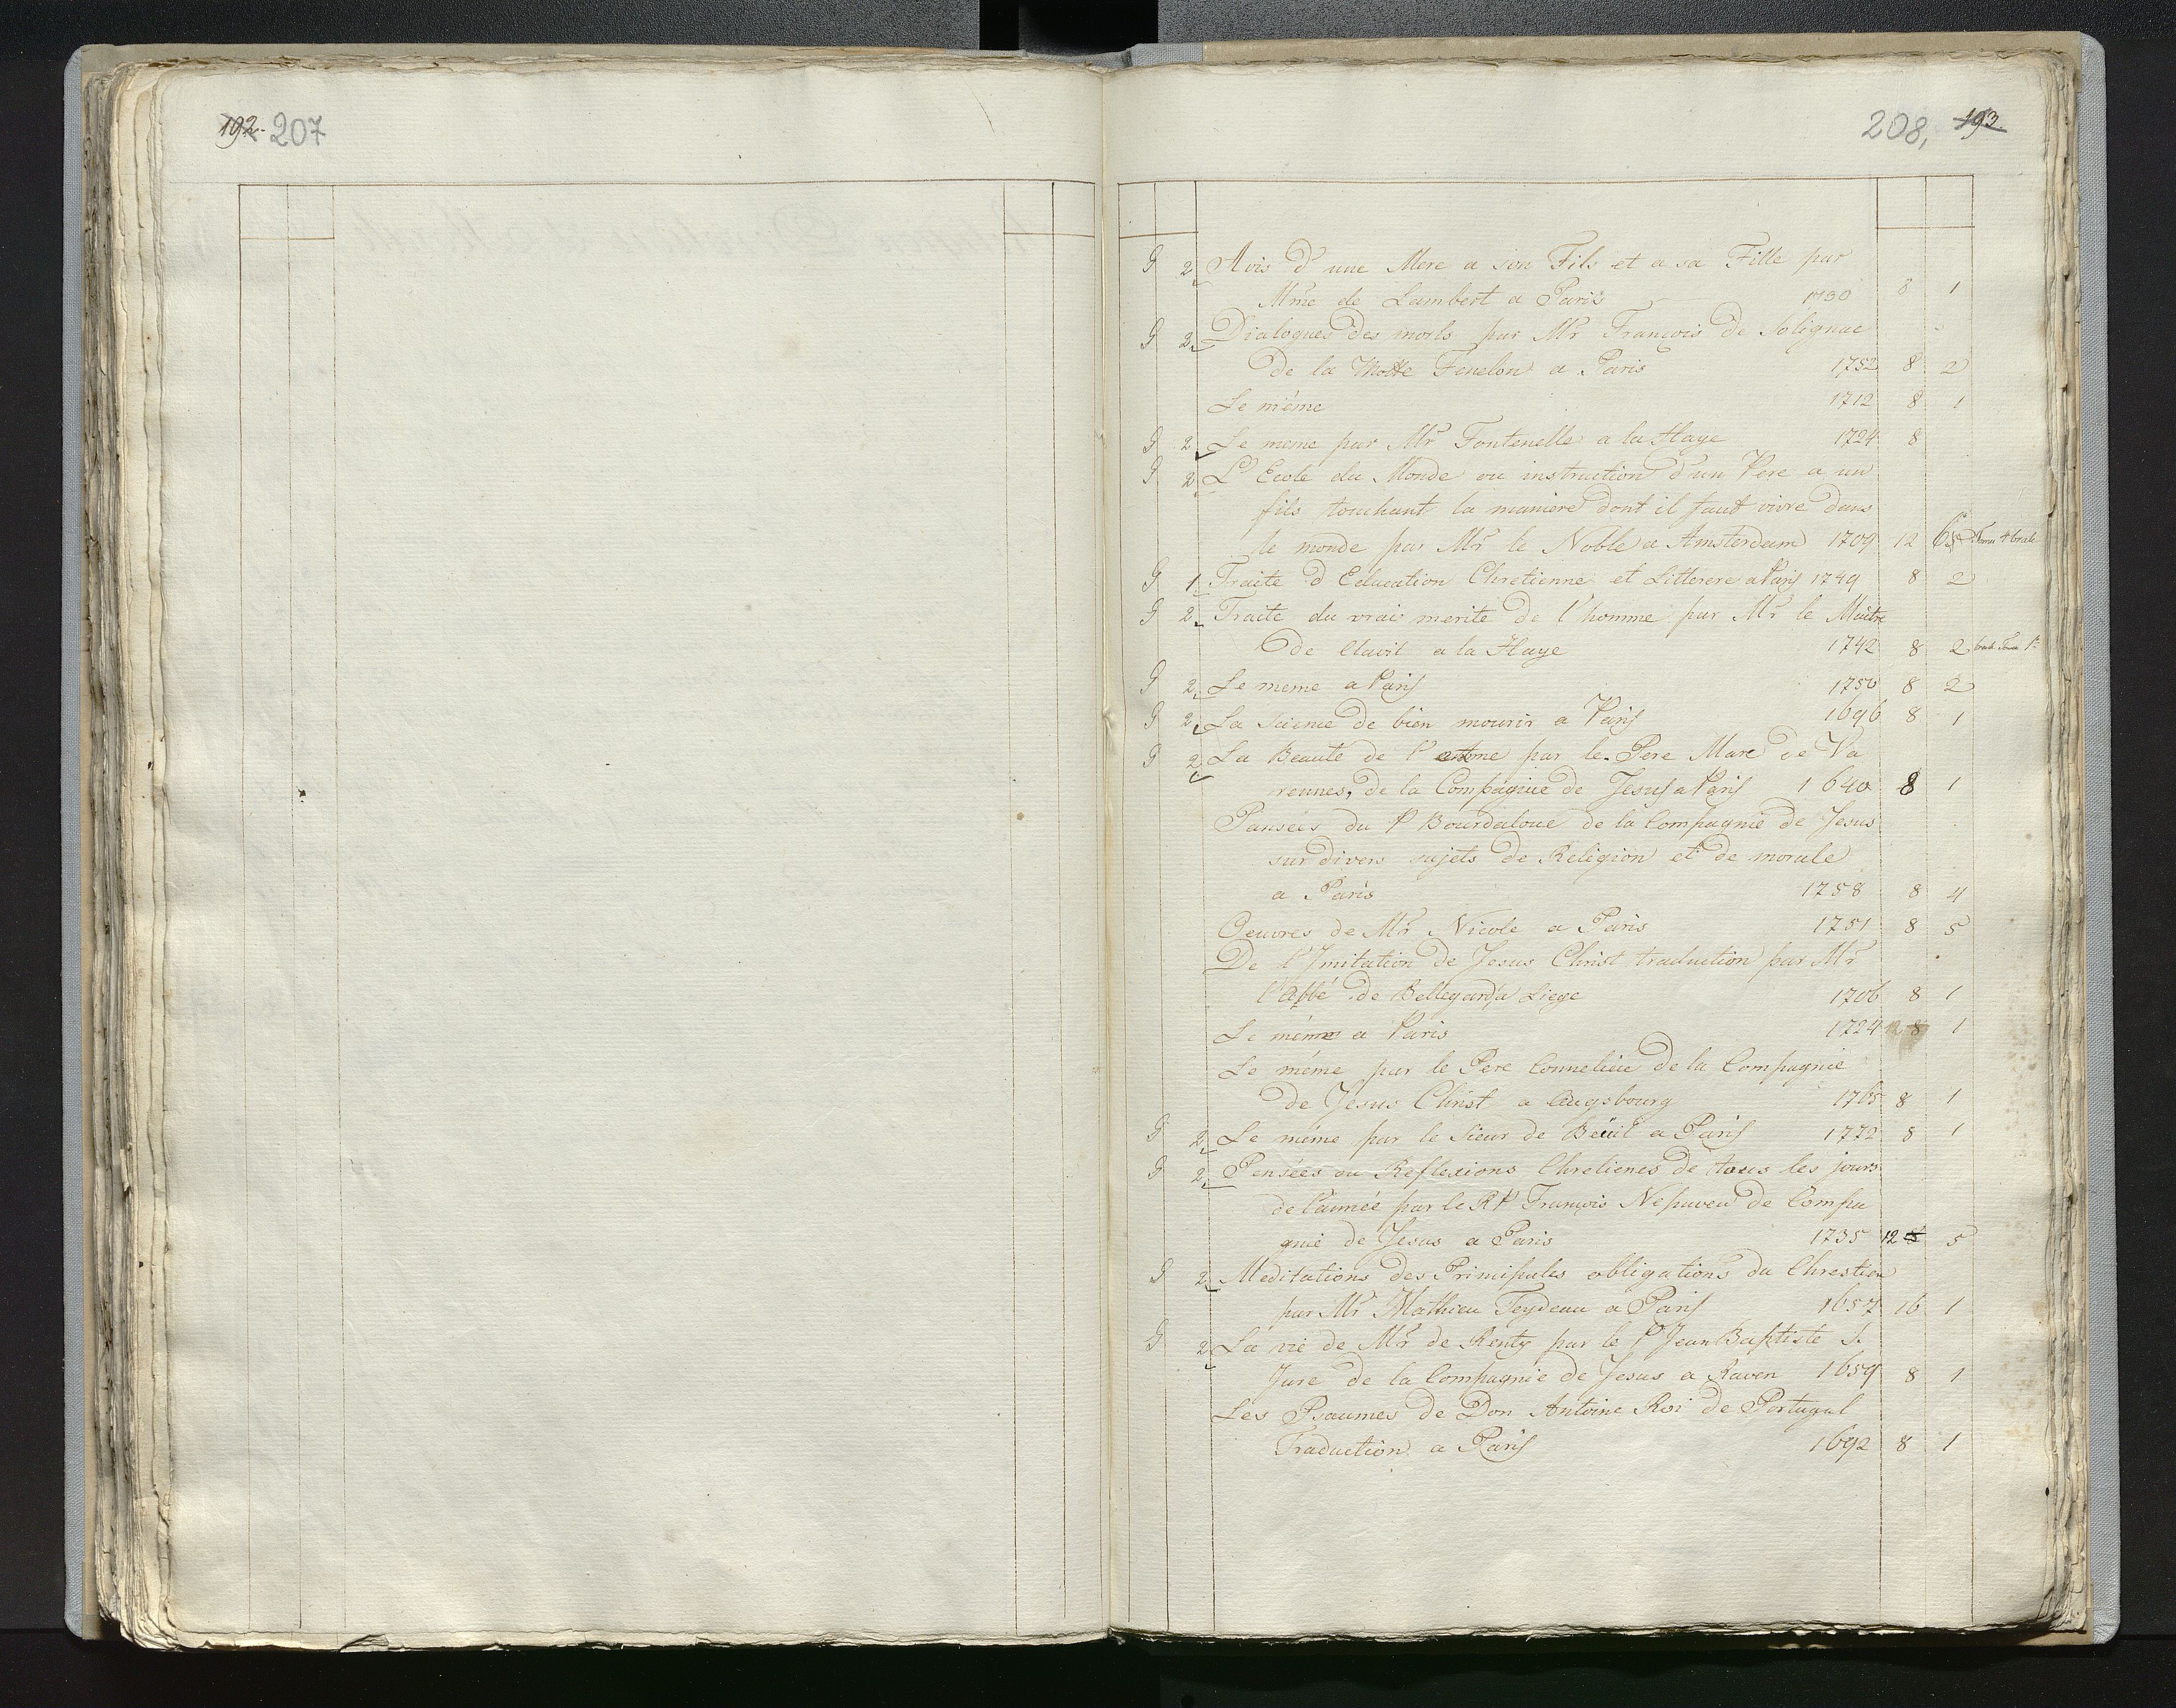 192. 207
208, 193
G 2 Avis d'une Mere a son Fils et a sa Fille par
Mme de Lambert a Paris 1730 8 1
G 2 Dialogues des morts par Mr François de Solignac
de la Motte Fenelon a Paris 1752 8 2
Le même 1712 8 1
G 2 Le meme par Mr Fontenelle a la Haye 1724 8
G 2 L'Ecole du Monde ou instruction d'un Pere a un
fils touchant la maniere dont il faut vivre dans
le monde par Mr le Noble a Amsterdam 1709 12
G 1 Traite d'Education Chretienne et Litterere a Paris 1749 8 2
G 2 Traite du vrai merite de l'homme par Mr le Maitre
de Clavil a la Haye 1742 8 2
G 2 Le meme a Paris 1750 8 2
G 2 La Sciense de bien mourir a Paris 1696 8 1
G 2 La Beaute de l'ame par le Pere Marc de Va
rennes, de la Compagnie de Jesus a Paris 1640 8 1
Pansées du P Bourdaloue de la Compagnie de Jesus
sur divers sujets de Religion et de morale
a Paris 1758 8 4
Oeuvres de Mr Nicole a Paris 1751 8 5
De l'Imitation de Jesus Christ traduction par Mr
l'Abbé de Bellegard a Liege 1706 8 1
Le même a Paris 1724 12 8 1
Le même par le Pere Connelieu de la Compagnie
de Jesus Christ a Augsbourg 1765 8 1
G 2 Le même par le Sieur de Beüil a Paris 1772 8 1
G 2 Pensées ou Reflexions Chretienes de tous les jours
de l'année par le RP François Nepuveu de Compa
gnie de Jesus a Paris 1735 12 5
G 2 Meditations des Principales obligations du Chrestien
par Mr Mathieu Feydeau a Paris 1657 16 1
G 2 La vie de Mr de Renty par le P Jean Baptiste S.
Jure de la Compagnie de Jesus a Rouen 1659 8 1
Les Psaumes de Don Antoine Roi de Portugal
Traduction a Paris 1692 8 1